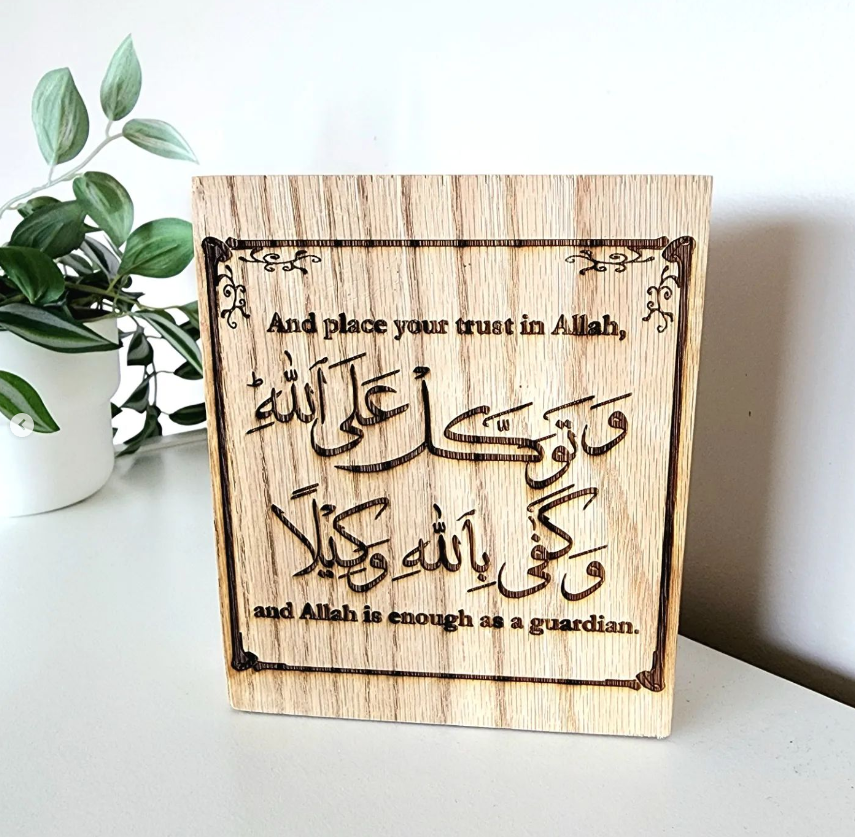 And place your trust in Allah,
وَتَوَكَّلْ عَلَى اللَّهِ ۚ
وَكَفَى بِاللَّهِ وَكِيلًا
and Allah is enough as a guardian.